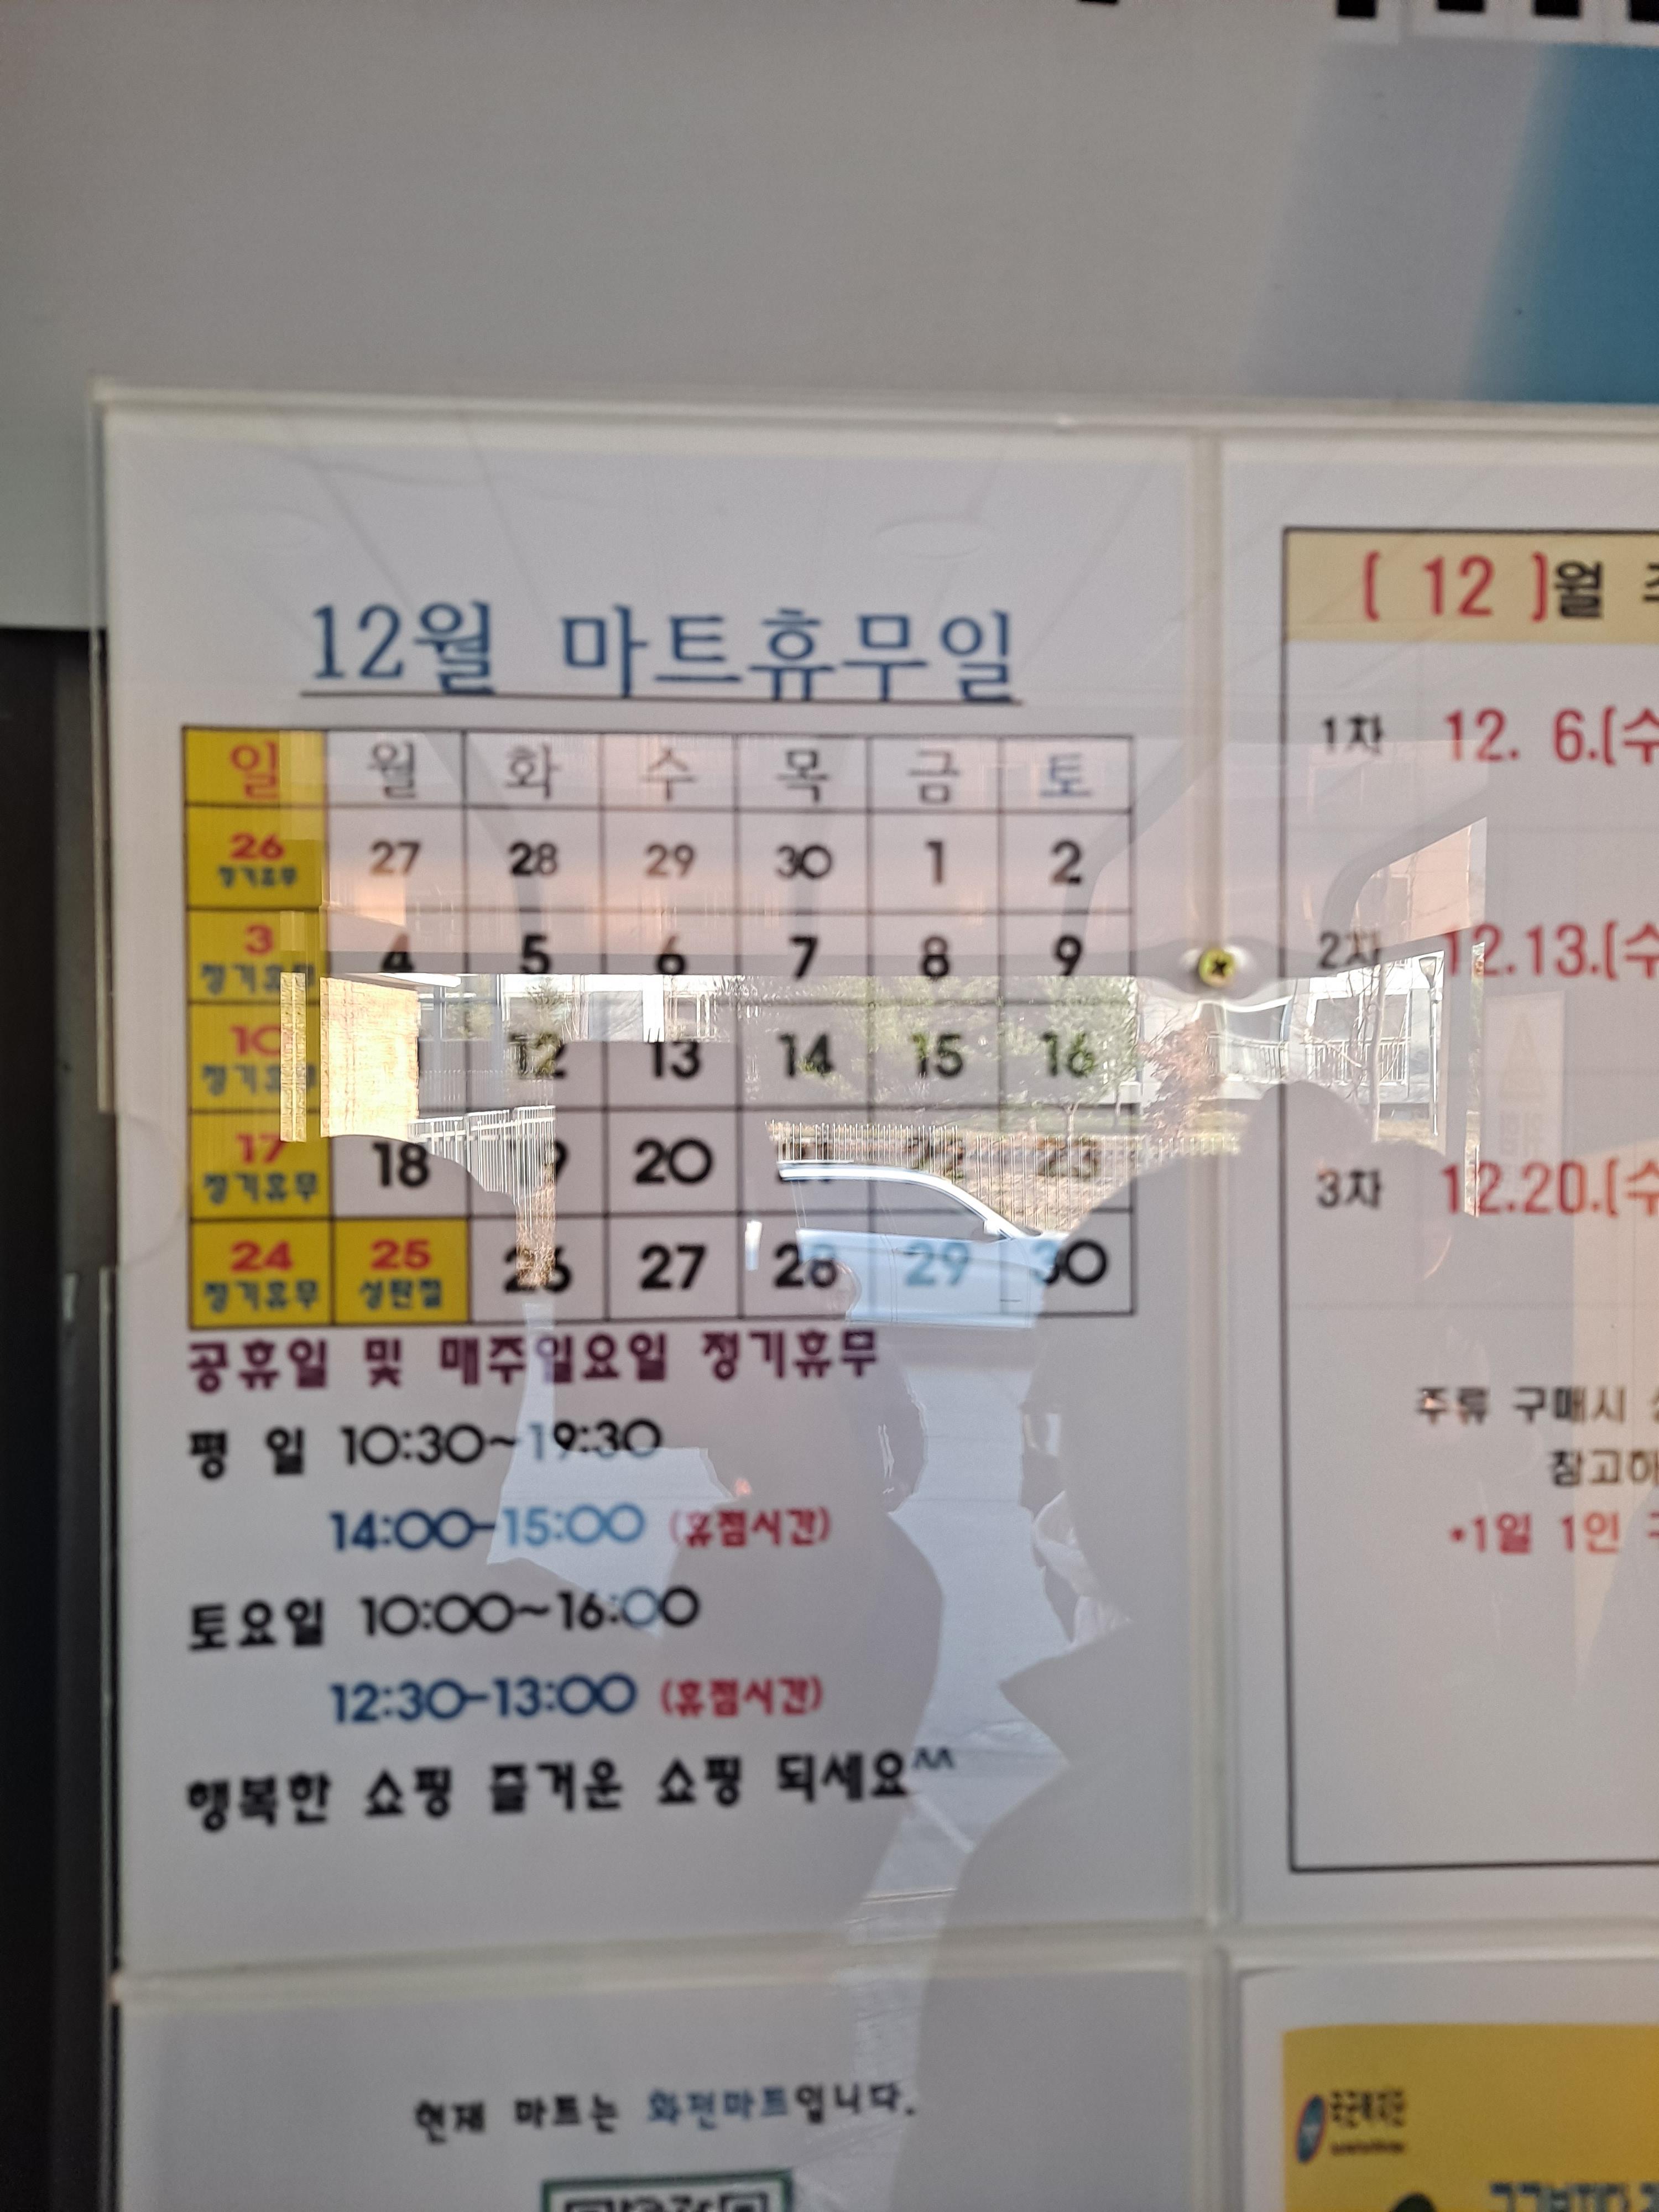 12월 마트휴무일
일 월 화 수 목 금 토
26 27 28 29 30 1 2
정기휴무
3 4 5 6 7 8 9
정기휴무
10 12 13 14 15 16
정기휴무
17 18 20 22 23
정기휴무
24 25 26 27 28 29 30
정기휴무 성탄절
공휴일 및 매주일요일 정기휴무
평 일 10:30~19:30
14:00-15:00 (휴점시간)
토요일 10:00~16:00
12:30-13:00 (휴점시간)
행복한 쇼핑 즐거운 쇼핑 되세요^^
[ 12 ]월
1차 12. 6.(수
2차 12.13.(수
3차 12.20.(수
주류 구매시
참고하
*1일 1인
현재 마트는 화전마트입니다.
국군복지단